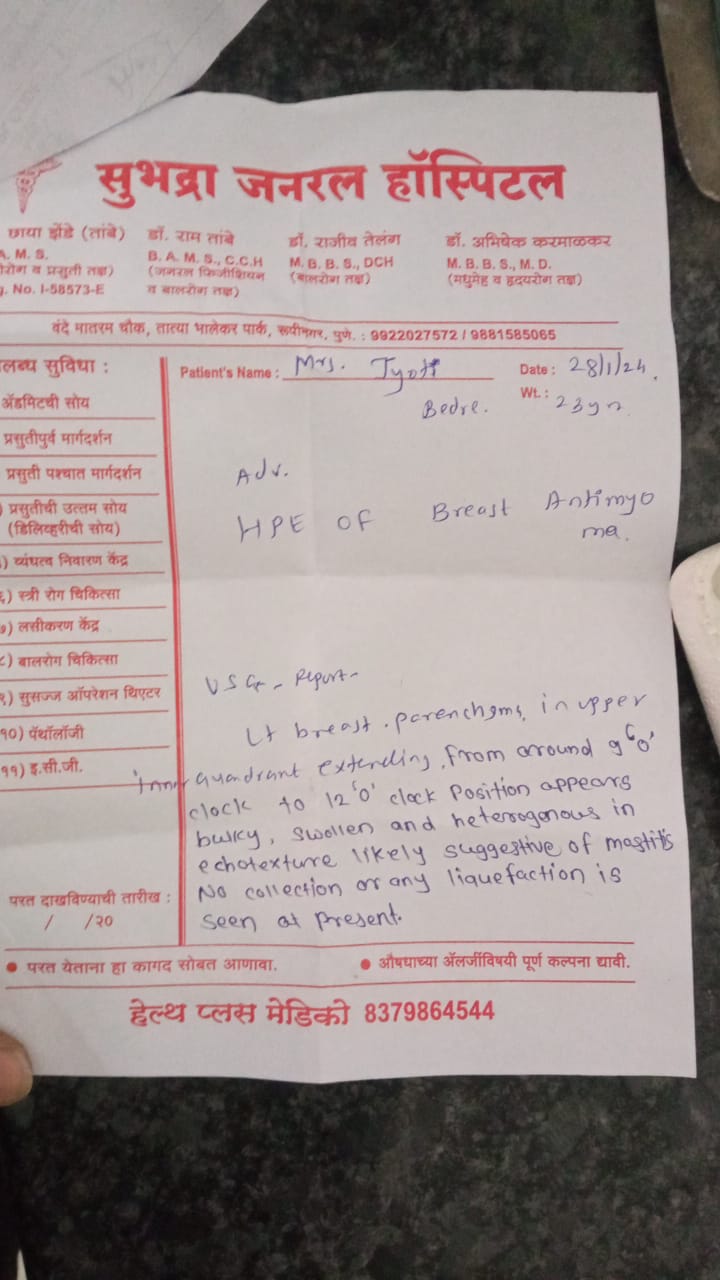 सुभद्रा जनरल हॉस्पिटल
छाया झेंडे (तांबे)
A. M. S.
रोग व प्रसुती तज्ञ)
g. No. I-58573-E
डॉ. राम तांबे
B. A. M. S., C.C.H
(जनरल फिजीशियन
व बालरोग तज्ञ)
डॉ. राजीव तेलंग
M. B. B. S., DCH
(बालरोग तज्ञ)
डॉ. अभिषेक करमाळकर
M. B. B. S., M. D.
(मधुमेह व ह्रदयरोग तज्ञ)
वंदे मातरम चौक, तात्या भालेकर पार्क, रूपीनगर, पुणे. : 9922027572 / 9881585065
लब्ध सुविधा :
ॲडमिटची सोय
प्रसुतीपुर्व मार्गदर्शन
प्रसुती पश्चात मार्गदर्शन
) प्रसुतीची उत्तम सोय
(डिलिव्हरीची सोय)
) व्यंधत्व निवारण केंद्र
६) स्त्री रोग चिकित्सा
७) लसीकरण केंद्र
८) बालरोग चिकित्सा
९) सुसज्ज ऑपरेशन थिएटर
१०) पॅथॉलॉजी
११) इ.सी.जी.
परत दाखविण्याची तारीख :
/ /२०
Patient's Name : Mrs. Jyoti
Bedre.
Date : 28/1/24.
Wt. : 23yr
Adv.
HPE OF Breast Antimyo
ma.
USG - Report-
Lt breast parenchyms, in upper
inner quandrant extending from around 9 'o'
clock to 12 'o' clock position appears
bulky, swollen and heterogonous in
echotexture likely suggestive of mastitis
No collection or any liquefaction is
seen at present.
● परत येताना हा कागद सोबत आणावा.
● औषधाच्या ॲलर्जीविषयी पूर्ण कल्पना द्यावी.
हेल्थ प्लस मेडिको 8379864544